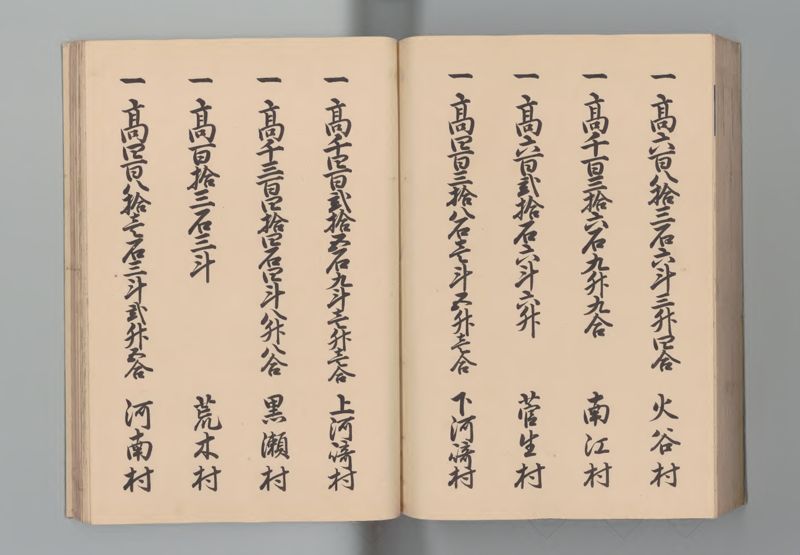 一 高六百八拾三石六斗三升四合 火谷村
一 高千百三拾六石九升九合 南江村
一 高六百弐拾石六斗六升 菅生村
一 高四百三拾八石壱斗五升壱合 下河崎村
一 高千四百弐拾五石九斗壱升壱合 上河崎村
一 高千三百四拾四石四斗八升八合 黒瀬村
一 高百拾三石三斗 荒木村
一 高四百八拾壱石三斗弐升五合 河南村